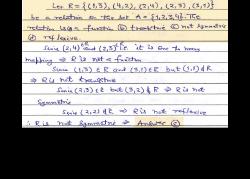 Let R = {(1,3), (4,2), (2,4), (2,3), (3,1)}
be a relation on the set A = {1,2,3,4}. The
relation is (a) function (b) transitive (c) not symmetric
(d) reflexive.
Since (2,4)∈R and (2,3)∈R it is one to many
mapping ⇒ R is not a function
Since (1,3) ∈ R and (3,1) ∈ R but (1,1) ∉ R
⇒ R is not transitive
Since (2,3) ∈ R but (3,2) ∉ R ⇒ R is not
Symmetric
Since (2,2) ∉ R ⇒ R is not reflexive
∴ R is not Symmetric ⇒ Answer (c)